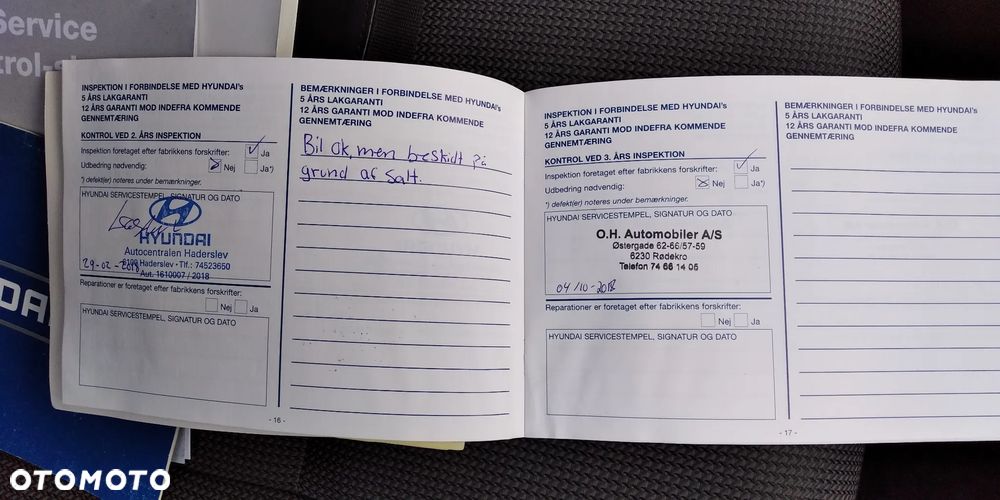 Service
trol-
DA
INSPEKTION I FORBINDELSE MED HYUNDAI's
5 ÅRS LAKGARANTI
12 ÅRS GARANTI MOD INDEFRA KOMMENDE
GENNEMTÆRING
KONTROL VED 2. ÅRS INSPEKTION
Inspektion foretaget efter fabrikkens forskrifter: Ja
Udbedring nødvendig: Nej Ja*)
*) defekt(er) noteres under bemærkninger.
HYUNDAI SERVICESTEMPEL, SIGNATUR OG DATO
HYUNDAI
Autocentralen Haderslev
6100 Haderslev · Tlf.: 74523650
29-02-2018
Aut. 1610007 / 2018
Reparationer er foretaget efter fabrikkens forskrifter:
Nej Ja
HYUNDAI SERVICESTEMPEL, SIGNATUR OG DATO
- 16 -
BEMÆRKNINGER I FORBINDELSE MED HYUNDAI's
5 ÅRS LAKGARANTI
12 ÅRS GARANTI MOD INDEFRA KOMMENDE
GENNEMTÆRING
Bil ok, men beskidt på
grund af salt.
INSPEKTION I FORBINDELSE MED HYUNDAI's
5 ÅRS LAKGARANTI
12 ÅRS GARANTI MOD INDEFRA KOMMENDE
GENNEMTÆRING
KONTROL VED 3. ÅRS INSPEKTION
Inspektion foretaget efter fabrikkens forskrifter: Ja
Udbedring nødvendig: Nej Ja*)
*) defekt(er) noteres under bemærkninger.
HYUNDAI SERVICESTEMPEL, SIGNATUR OG DATO
O.H. Automobiler A/S
Østergade 62-66/57-59
6230 Rødekro
Telefon 74 66 14 05
04/10-2018
Reparationer er foretaget efter fabrikkens forskrifter:
Nej Ja
HYUNDAI SERVICESTEMPEL, SIGNATUR OG DATO
- 17 -
BEMÆRKNINGER I FORBINDELSE MED HYUNDAI's
5 ÅRS LAKGARANTI
12 ÅRS GARANTI MOD INDEFRA KOMMENDE
GENNEMTÆRING
OTOMOTO